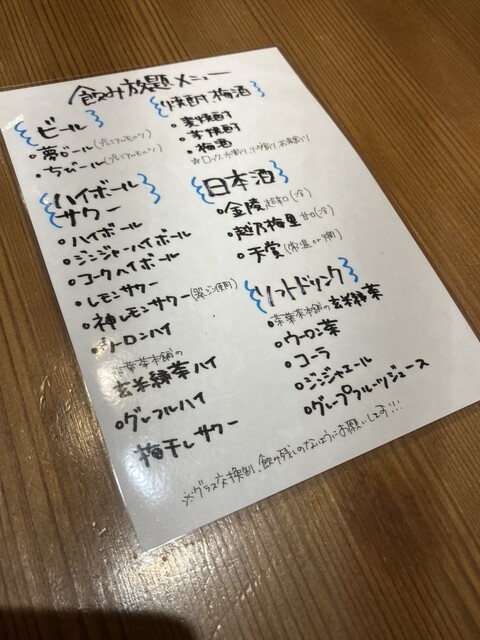 飲み放題メニュー
ビール
・夢ビール(プレミアムモルツ)
・ちびビール(プレミアムモルツ)
ハイボール
サワー
・ハイボール
・ジンジャーハイボール
・コークハイボール
・レモンサワー
・神レモンサワー(翠ジン使用)
・ウーロンハイ
・茶葉茶本舗の
玄米緑茶ハイ
・グレフルハイ
梅干しサワー
焼酎、梅酒
・麦焼酎
・芋焼酎
・梅酒
☆ロック、水割り、ソーダ割り、お湯割り
日本酒
・金陵 超辛口(冷)
・越乃梅里 甘口(冷)
・天賞(常温or燗)
ソフトドリンク
・茶葉茶本舗の玄米緑茶
・ウーロン茶
・コーラ
・ジンジャエール
・グレープフルーツジュース
※グラス交換制、飲み残しのないようにお願いします!!!